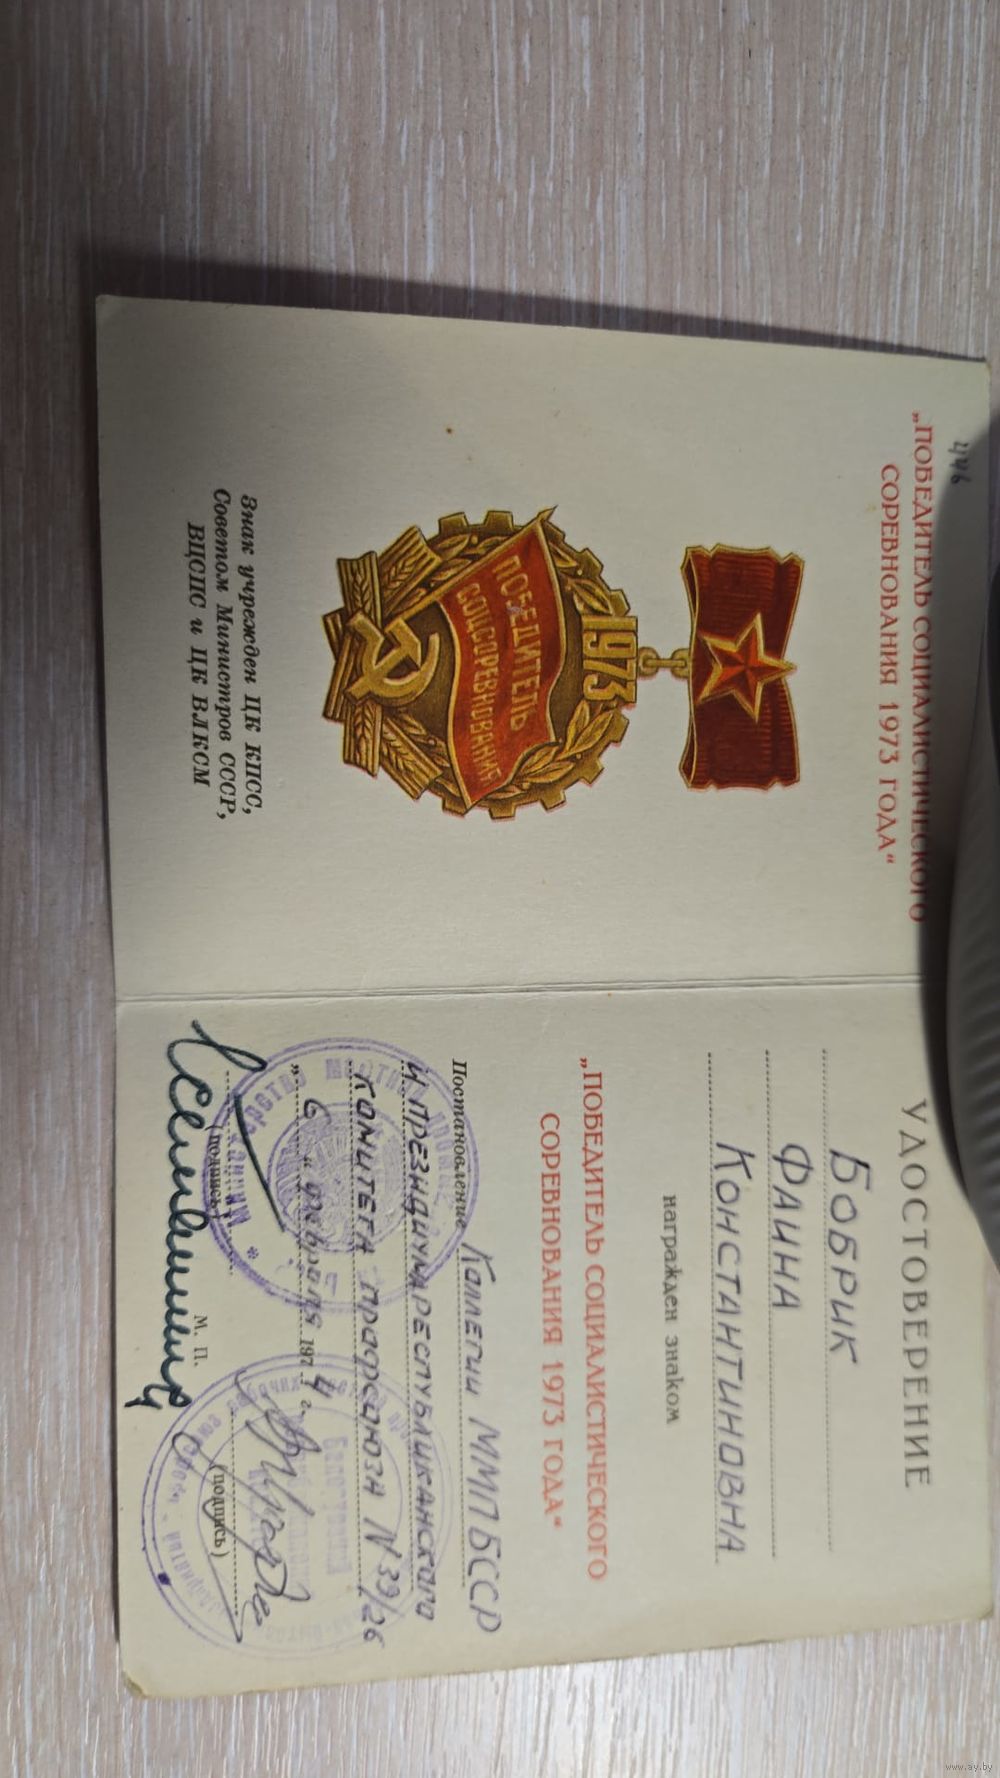 446
„ПОБЕДИТЕЛЬ СОЦИАЛИСТИЧЕСКОГО
СОРЕВНОВАНИЯ 1973 ГОДА“
1973
ПОБЕДИТЕЛЬ
СОЦСОРЕВНОВАНИЯ
Знак учрежден ЦК КПСС,
Советом Министров СССР,
ВЦСПС и ЦК ВЛКСМ
УДОСТОВЕРЕНИЕ
БОБРИК
ФАИНА
КОНСТАНТИНОВНА
награжден знаком
„ПОБЕДИТЕЛЬ СОЦИАЛИСТИЧЕСКОГО
СОРЕВНОВАНИЯ 1973 ГОДА“
Постановление Коллегии ММП БССР
и ПРЕЗИДИУМА РЕСПУБЛИКАНСКОГО
КОМИТЕТА ПРОФСОЮЗА N 39/26
„ 6 “ февраля 1974 г.
(подпись)
М. П.
(подпись)
www.ay.by